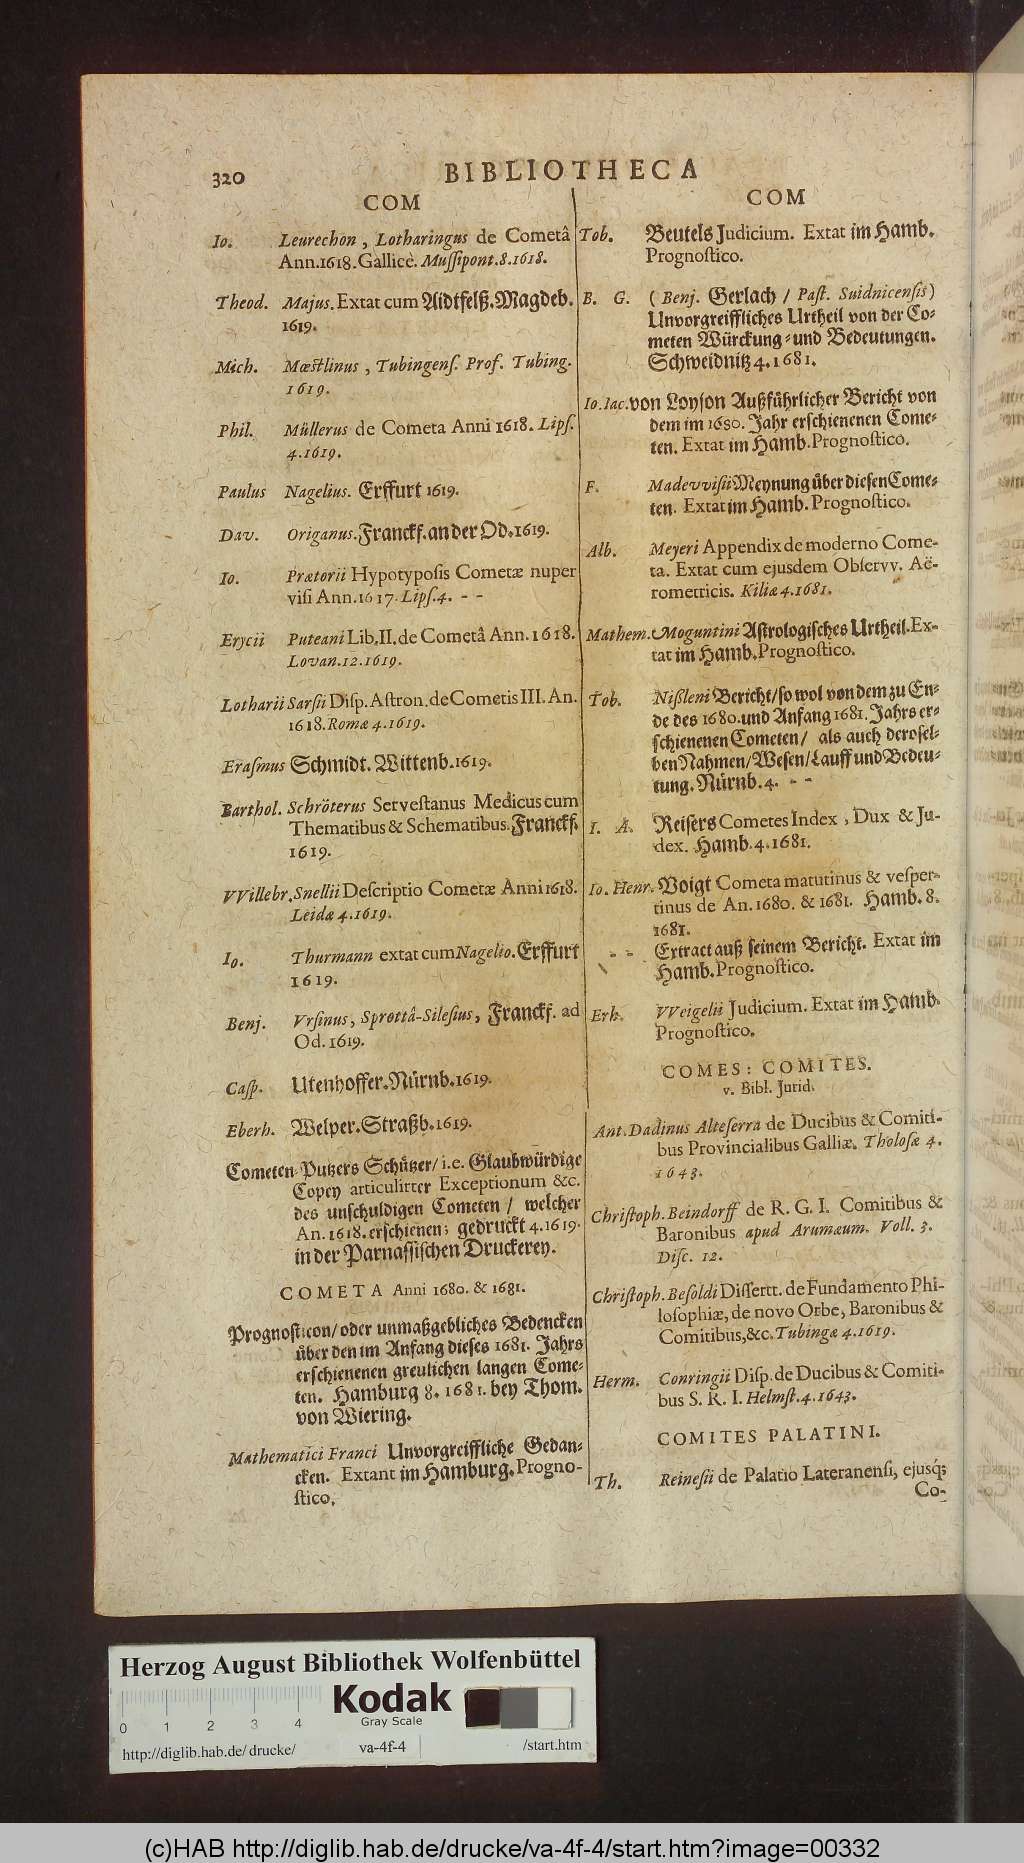 320
BIBLIOTHECA
COM
Io. Leurechon, Lotharingus de Cometâ
Ann.1618.Gallicè. Mussipont.8.1618.
Theod. Majus. Extat cum Aidtfelß. Magdeb.
1619.
Mich. Mœstlinus, Tubingens. Prof. Tubing.
1619.
Phil. Müllerus de Cometa Anni 1618. Lips.
4.1619.
Paulus Nagelius. Erffurt 1619.
Dav. Origanus. Franckf. an der Od. 1619.
Io. Prætorii Hypotyposis Cometæ nuper
visi Ann.1617. Lips.4. - -
Erycii Puteani Lib. II. de Cometâ Ann. 1618.
Lovan.12.1619.
Lotharii Sarsii Disp. Astron. de Cometis III. An.
1618. Romæ 4.1619.
Erasmus Schmidt. Wittenb. 1619.
Barthol. Schröterus Servestanus Medicus cum
Thematibus & Schematibus. Franckf.
1619.
VVillebr. Snellii Descriptio Cometæ Anni 1618.
Leidæ 4.1619.
Io. Thurmann extat cum Nagelio. Erffurt
1619.
Benj. Vrsinus, Sprottâ-Silesius, Franckf. ad
Od. 1619.
Casp. Utenhoffer. Nürnb. 1619.
Eberh. Welper. Straßb. 1619.
Cometen-Putzers Schützer/ i.e. Glaubwürdige
Copey articulirter Exceptionum &c.
des unschuldigen Cometen / welcher
An. 1618. erschienen; gedruckt 4.1619.
in der Parnassischen Druckerey.
COMETA Anni 1680. & 1681.
Prognosticon/ oder unmaßgebliches Bedencken
über den im Anfang dieses 1681. Jahrs
erschienenen greulichen langen Come-
ten. Hamburg 8. 1681. bey Thom.
von Wiering.
Mathematici Franci Unvorgreiffliche Gedan-
cken. Extant im Hamburg. Progno-
stico.
COM
Tob. Beutels Judicium. Extat im Hamb.
Prognostico.
B. G. (Benj. Gerlach / Past. Suidnicensis)
Unvorgreiffliches Urtheil von der Co-
meten Würckung- und Bedeutungen.
Schweidnitz 4. 1681.
Io. Iac. von Loyson Außführlicher Bericht von
dem im 1680. Jahr erschienenen Come-
ten. Extat im Hamb. Prognostico.
F. Madevvisii Meynung über diesen Come-
ten. Extat im Hamb. Prognostico.
Alb. Meyeri Appendix de moderno Come-
ta. Extat cum ejusdem Observv. Aë-
rometricis. Kiliæ 4.1681.
Mathem. Moguntini Astrologisches Urtheil. Ex-
tat im Hamb. Prognostico.
Tob. Nißleni Bericht/ so wol von dem zu En-
de des 1680. und Anfang 1681. Jahrs er-
schienenen Cometen/ als auch derosel-
ben Nahmen/ Wesen/ Lauff und Bedeu-
tung. Nürnb. 4. - -
I. A. Reisers Cometes Index, Dux & Ju-
dex. Hamb. 4.1681.
Io. Henr. Voigt Cometa matutinus & vesper-
tinus de An. 1680. & 1681. Hamb. 8.
1681.
- - Extract auß seinem Bericht. Extat im
Hamb. Prognostico.
Erh. VVeigelii Judicium. Extat im Hamb.
Prognostico.
COMES: COMITES.
v. Bibl. Jurid.
Ant. Dadinus Alteserra de Ducibus & Comiti-
bus Provincialibus Galliæ. Tholosæ 4.
1643.
Christoph. Beindorff de R. G. I. Comitibus &
Baronibus apud Arumæum. Voll. 3.
Disc. 12.
Christoph. Besoldi Dissertt. de Fundamento Phi-
losophiæ, de novo Orbe, Baronibus &
Comitibus, &c. Tubingæ 4.1619.
Herm. Conringii Disp. de Ducibus & Comiti-
bus S. R. I. Helmst. 4.1643.
COMITES PALATINI.
Th. Reinesii de Palatio Lateranensi, ejusq;
Co-
Herzog August Bibliothek Wolfenbüttel
Kodak
Gray Scale
0 1 2 3 4
http://diglib.hab.de/drucke/ va-4f-4 /start.htm
(c)HAB http://diglib.hab.de/drucke/va-4f-4/start.htm?image=00332